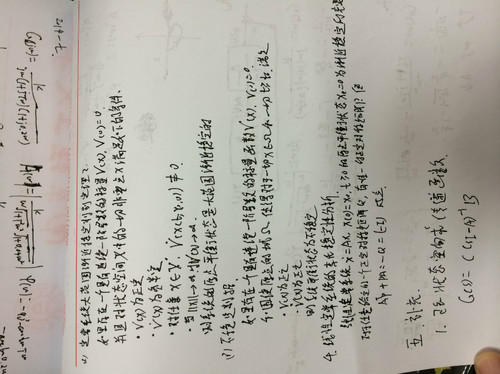 (2) 定常系统大范围渐近稳定判别定理2
如果存在一个具有连续一阶导数的标量V(x), V(0)=0.
并且对状态空间X中的一切非零点x满足如下的条件.
· V(x)为正定
· V̇(x)为负半定
· 对任意 x∈X, V̇(x(t, x0, 0)) ≠ 0
· 当||x||→∞时V(x)→∞.
则系统的原点平衡状态是大范围渐近稳定的
(3) 不稳定判别
如果存在一个具有连续一阶导数的标量函数V(x), V(0)=0.
和围绕原点的域Ω, 使得对于一切x∈Ω和一切t≥t0 满足
· V(x)为正定
· V̇(x)为正定
则系统平衡状态为不稳定
4. 线性定常系统的李氏稳定性分析.
线性定常系统 ẋ=Ax, x(0)=x0, t≥0的原点平衡状态xe=0为渐近稳定的充要
对任意给定的一个正定对称矩阵Q, 有唯一的正定对称矩阵P使
AᵀP+PA=-Q=(-I) 成立.
五. 补充.
1. 已知状态空间求传递函数
G(s)= C(sI-A)⁻¹B